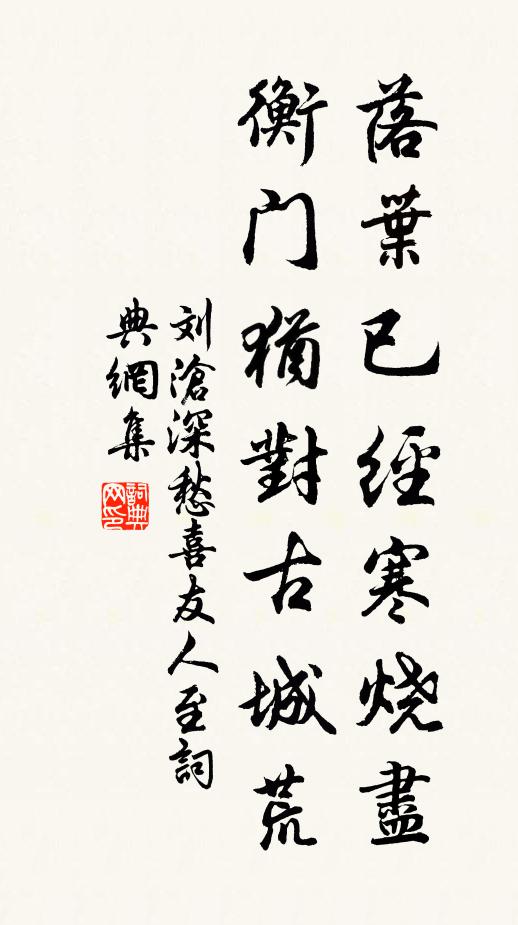 落葉已經寒烧盡
衡门猶對古城荒
刘滄深愁喜友人至詞
典網集
詞典网印